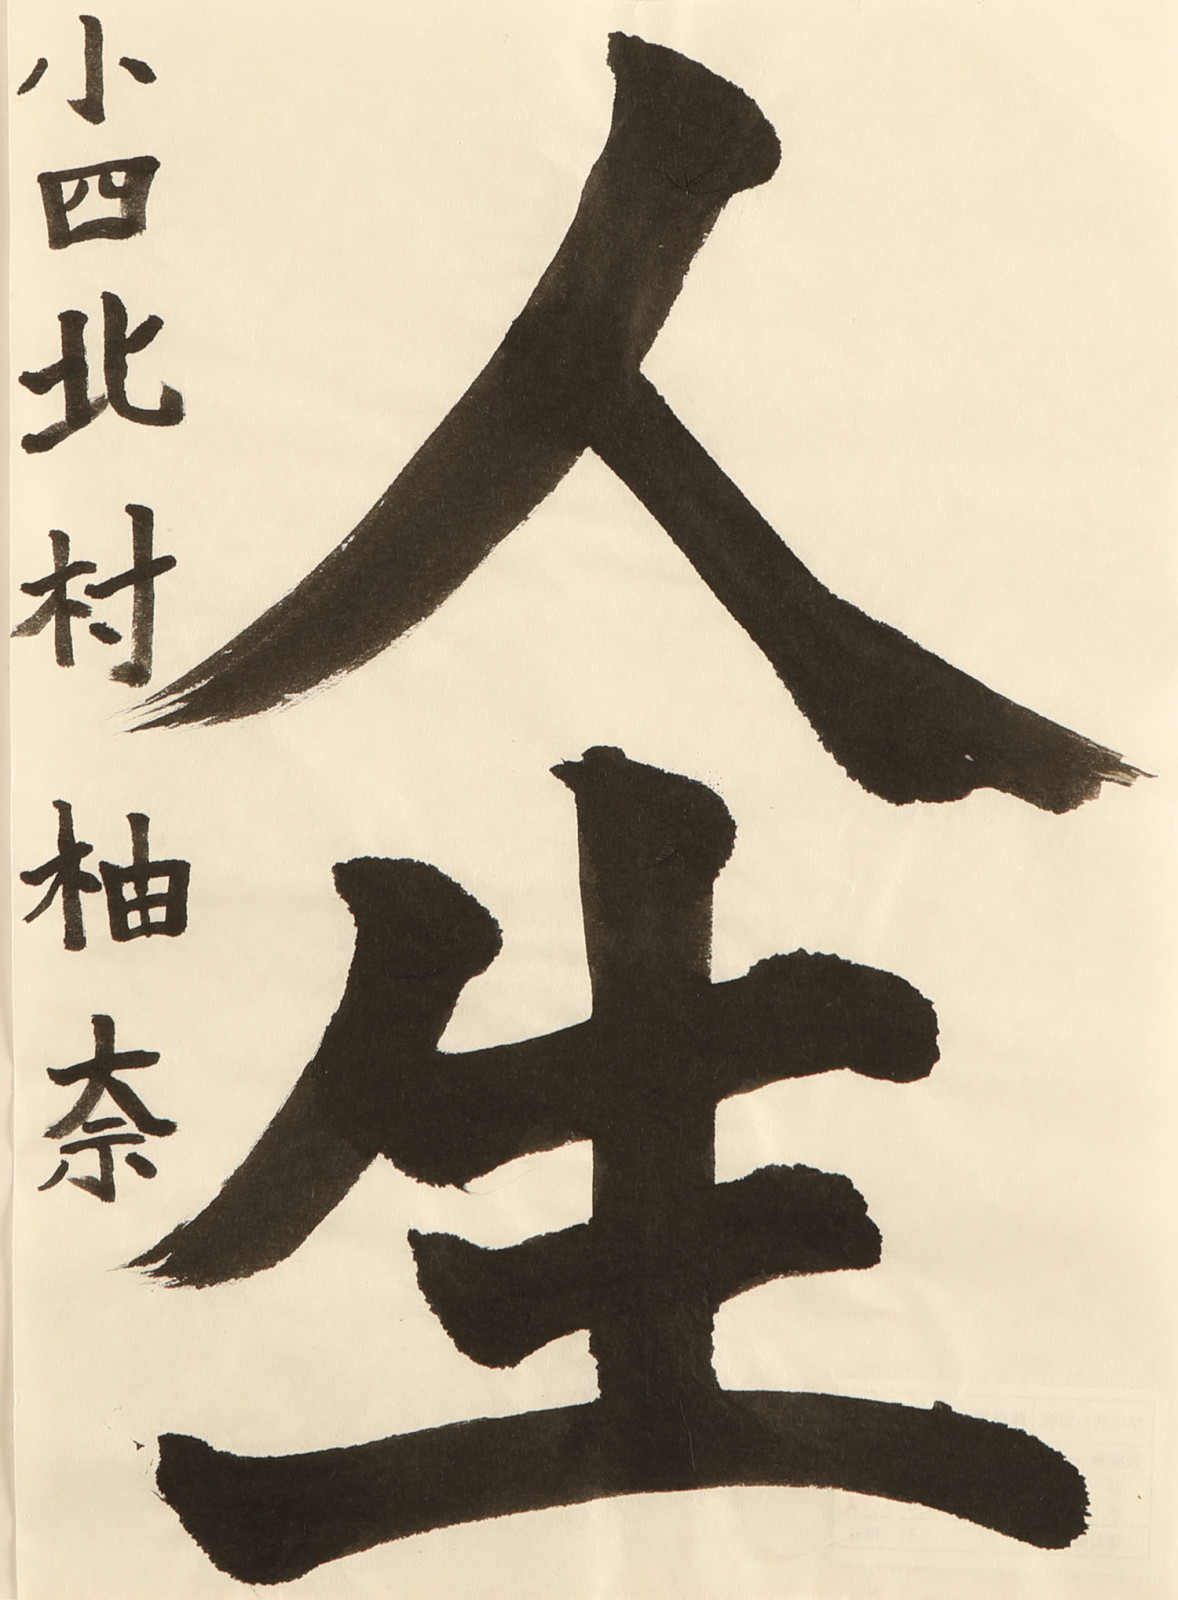 人生
小四北村柚奈